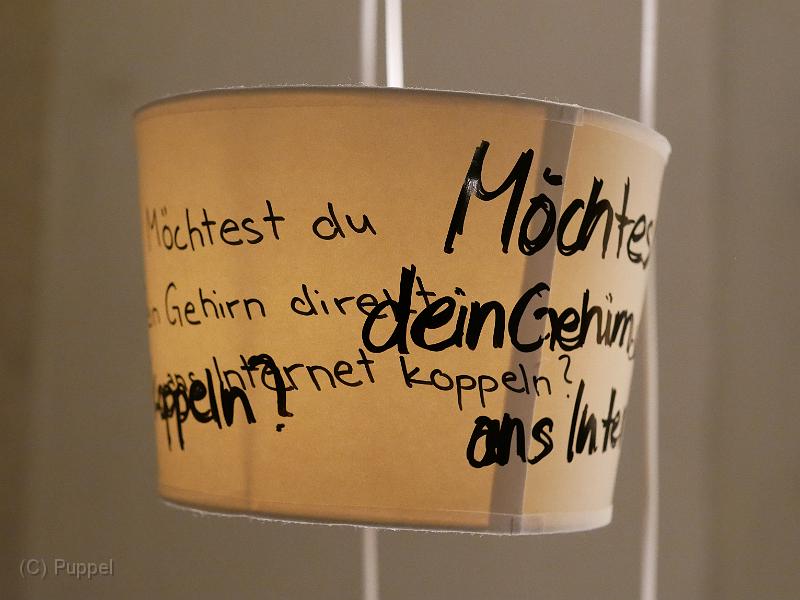 Möchtest du
Gehirn direkt
ans Internet koppeln?
Möchtes
dein Gehirn
ans Inte
koppeln?
(C) Puppel